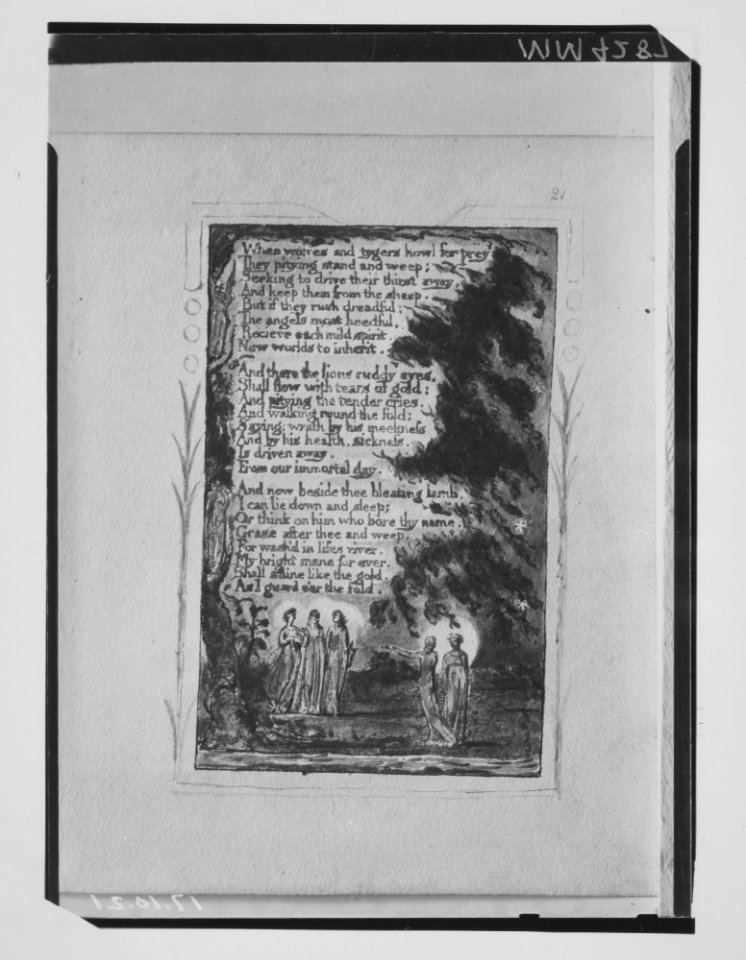 MW7287
21
When wolves and tygers howl for prey
They pitying stand and weep;
Seeking to drive their thirst away,
And keep them from the sheep.
But if they rush dreadful;
The angels most heedful,
Recieve each mild spirit,
New worlds to inherit.
And there the lions ruddy eyes,
Shall flow with tears of gold:
And pitying the tender cries,
And walking round the fold:
Saying: wrath by his meekness
And by his health, sickness,
Is driven away,
From our immortal day.
And now beside thee bleating lamb,
I can lie down and sleep;
Or think on him who bore thy name,
Grase after thee and weep.
For wash'd in lifes river,
My bright mane for ever,
Shall shine like the gold,
As I guard o'er the fold.
17.10.21